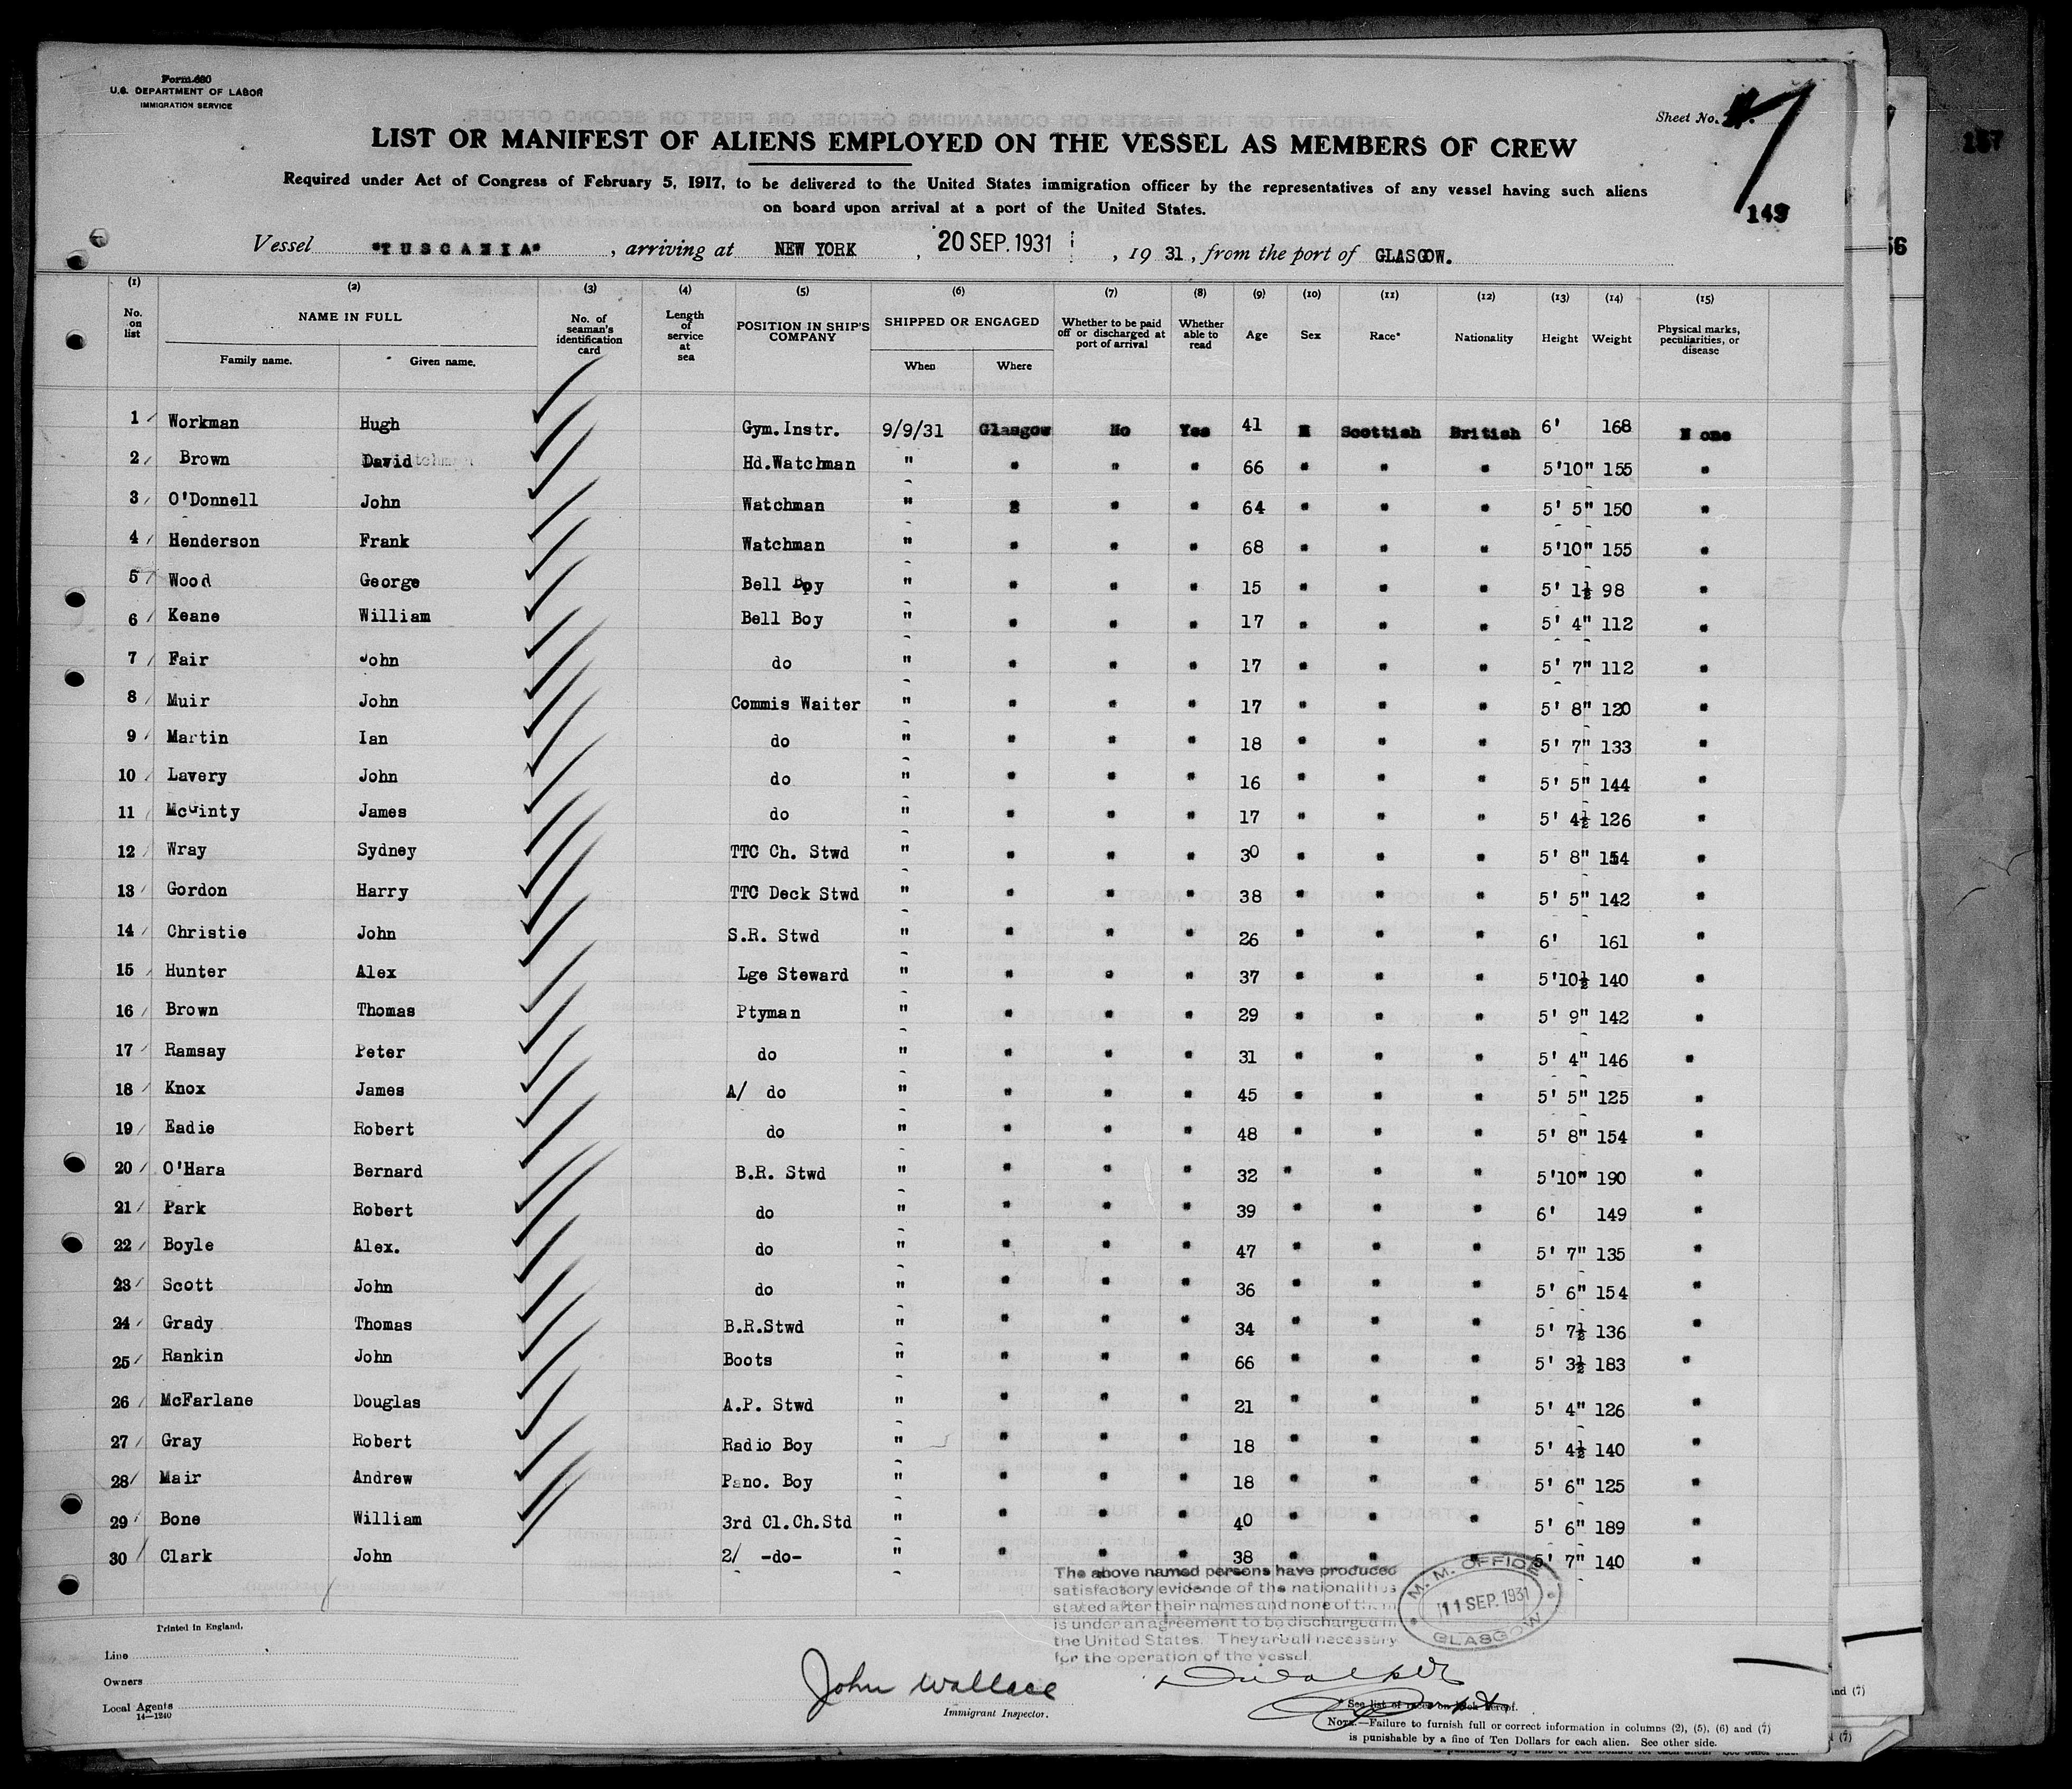 Form 680
U.S. DEPARTMENT OF LABOR
IMMIGRATION SERVICE
Sheet No.
149
157
56
LIST OR MANIFEST OF ALIENS EMPLOYED ON THE VESSEL AS MEMBERS OF CREW
Required under Act of Congress of February 5, 1917, to be delivered to the United States immigration officer by the representatives of any vessel having such aliens
on board upon arrival at a port of the United States.
Vessel "TUSCANIA", arriving at NEW YORK, 20 SEP. 1931, 19 31, from the port of GLASGOW.
(1) (2) (3) (4) (5) (6) (7) (8) (9) (10) (11) (12) (13) (14) (15)
No. on list NAME IN FULL Family name. Given name. No. of seaman's identification card Length of service at sea POSITION IN SHIP'S COMPANY SHIPPED OR ENGAGED When Where Whether to be paid off or discharged at port of arrival Whether able to read Age Sex Race* Nationality Height Weight Physical marks, peculiarities, or disease
1 Workman Hugh Gym.Instr. 9/9/31 Glasgow No Yes 41 M Scottish British 6' 168 None
2 Brown David Hd.Watchman " " " " 66 " " " 5'10" 155 "
3 O'Donnell John Watchman " " " " 64 " " " 5' 5" 150 "
4 Henderson Frank Watchman " " " " 68 " " " 5'10" 155 "
5 Wood George Bell Boy " " " " 15 " " " 5' 1½ 98 "
6 Keane William Bell Boy " " " " 17 " " " 5' 4" 112 "
7 Fair John do " " " " 17 " " " 5' 7" 112 "
8 Muir John Commis Waiter " " " " 17 " " " 5' 8" 120 "
9 Martin Ian do " " " " 18 " " " 5' 7" 133 "
10 Lavery John do " " " " 16 " " " 5' 5" 144 "
11 McGinty James do " " " " 17 " " " 5' 4½ 126 "
12 Wray Sydney TTC Ch. Stwd " " " " 30 " " " 5' 8" 154 "
13 Gordon Harry TTC Deck Stwd " " " " 38 " " " 5' 5" 142 "
14 Christie John S.R. Stwd " " " " 26 " " " 6' 161 "
15 Hunter Alex Lge Steward " " " " 37 " " " 5'10½ 140 "
16 Brown Thomas Ptyman " " " " 29 " " " 5' 9" 142 "
17 Ramsay Peter do " " " " 31 " " " 5' 4" 146 "
18 Knox James A/ do " " " " 45 " " " 5' 5" 125 "
19 Eadie Robert do " " " " 48 " " " 5' 8" 154 "
20 O'Hara Bernard B.R. Stwd " " " " 32 " " " 5'10" 190 "
21 Park Robert do " " " " 39 " " " 6' 149 "
22 Boyle Alex. do " " " " 47 " " " 5' 7" 135 "
23 Scott John do " " " " 36 " " " 5' 6" 154 "
24 Grady Thomas B.R.Stwd " " " " 34 " " " 5' 7½ 136 "
25 Rankin John Boots " " " " 66 " " " 5' 3½ 183 "
26 McFarlane Douglas A.P. Stwd " " " " 21 " " " 5' 4" 126 "
27 Gray Robert Radio Boy " " " " 18 " " " 5' 4½ 140 "
28 Mair Andrew Pano. Boy " " " " 18 " " " 5' 6" 125 "
29 Bone William 3rd Cl.Ch.Std " " " " 40 " " " 5' 6" 189 "
30 Clark John 2/ -do- " " " " 38 " " " 5' 7" 140 "
The above named persons have produced
satisfactory evidence of the nationalities
stated after their names and none of them
is under an agreement to be discharged in
the United States. They are all necessary
for the operation of the vessel.
M. M. OFFICE
11 SEP. 1931
GLASGOW
Printed in England.
Line
Owners
Local Agents
14—1240
John Wallace
Immigrant Inspector.
* See list of races on back hereof.
NOTE.—Failure to furnish full or correct information in columns (2), (5), (6) and (7)
is punishable by a fine of Ten Dollars for each alien. See other side.
and (7)